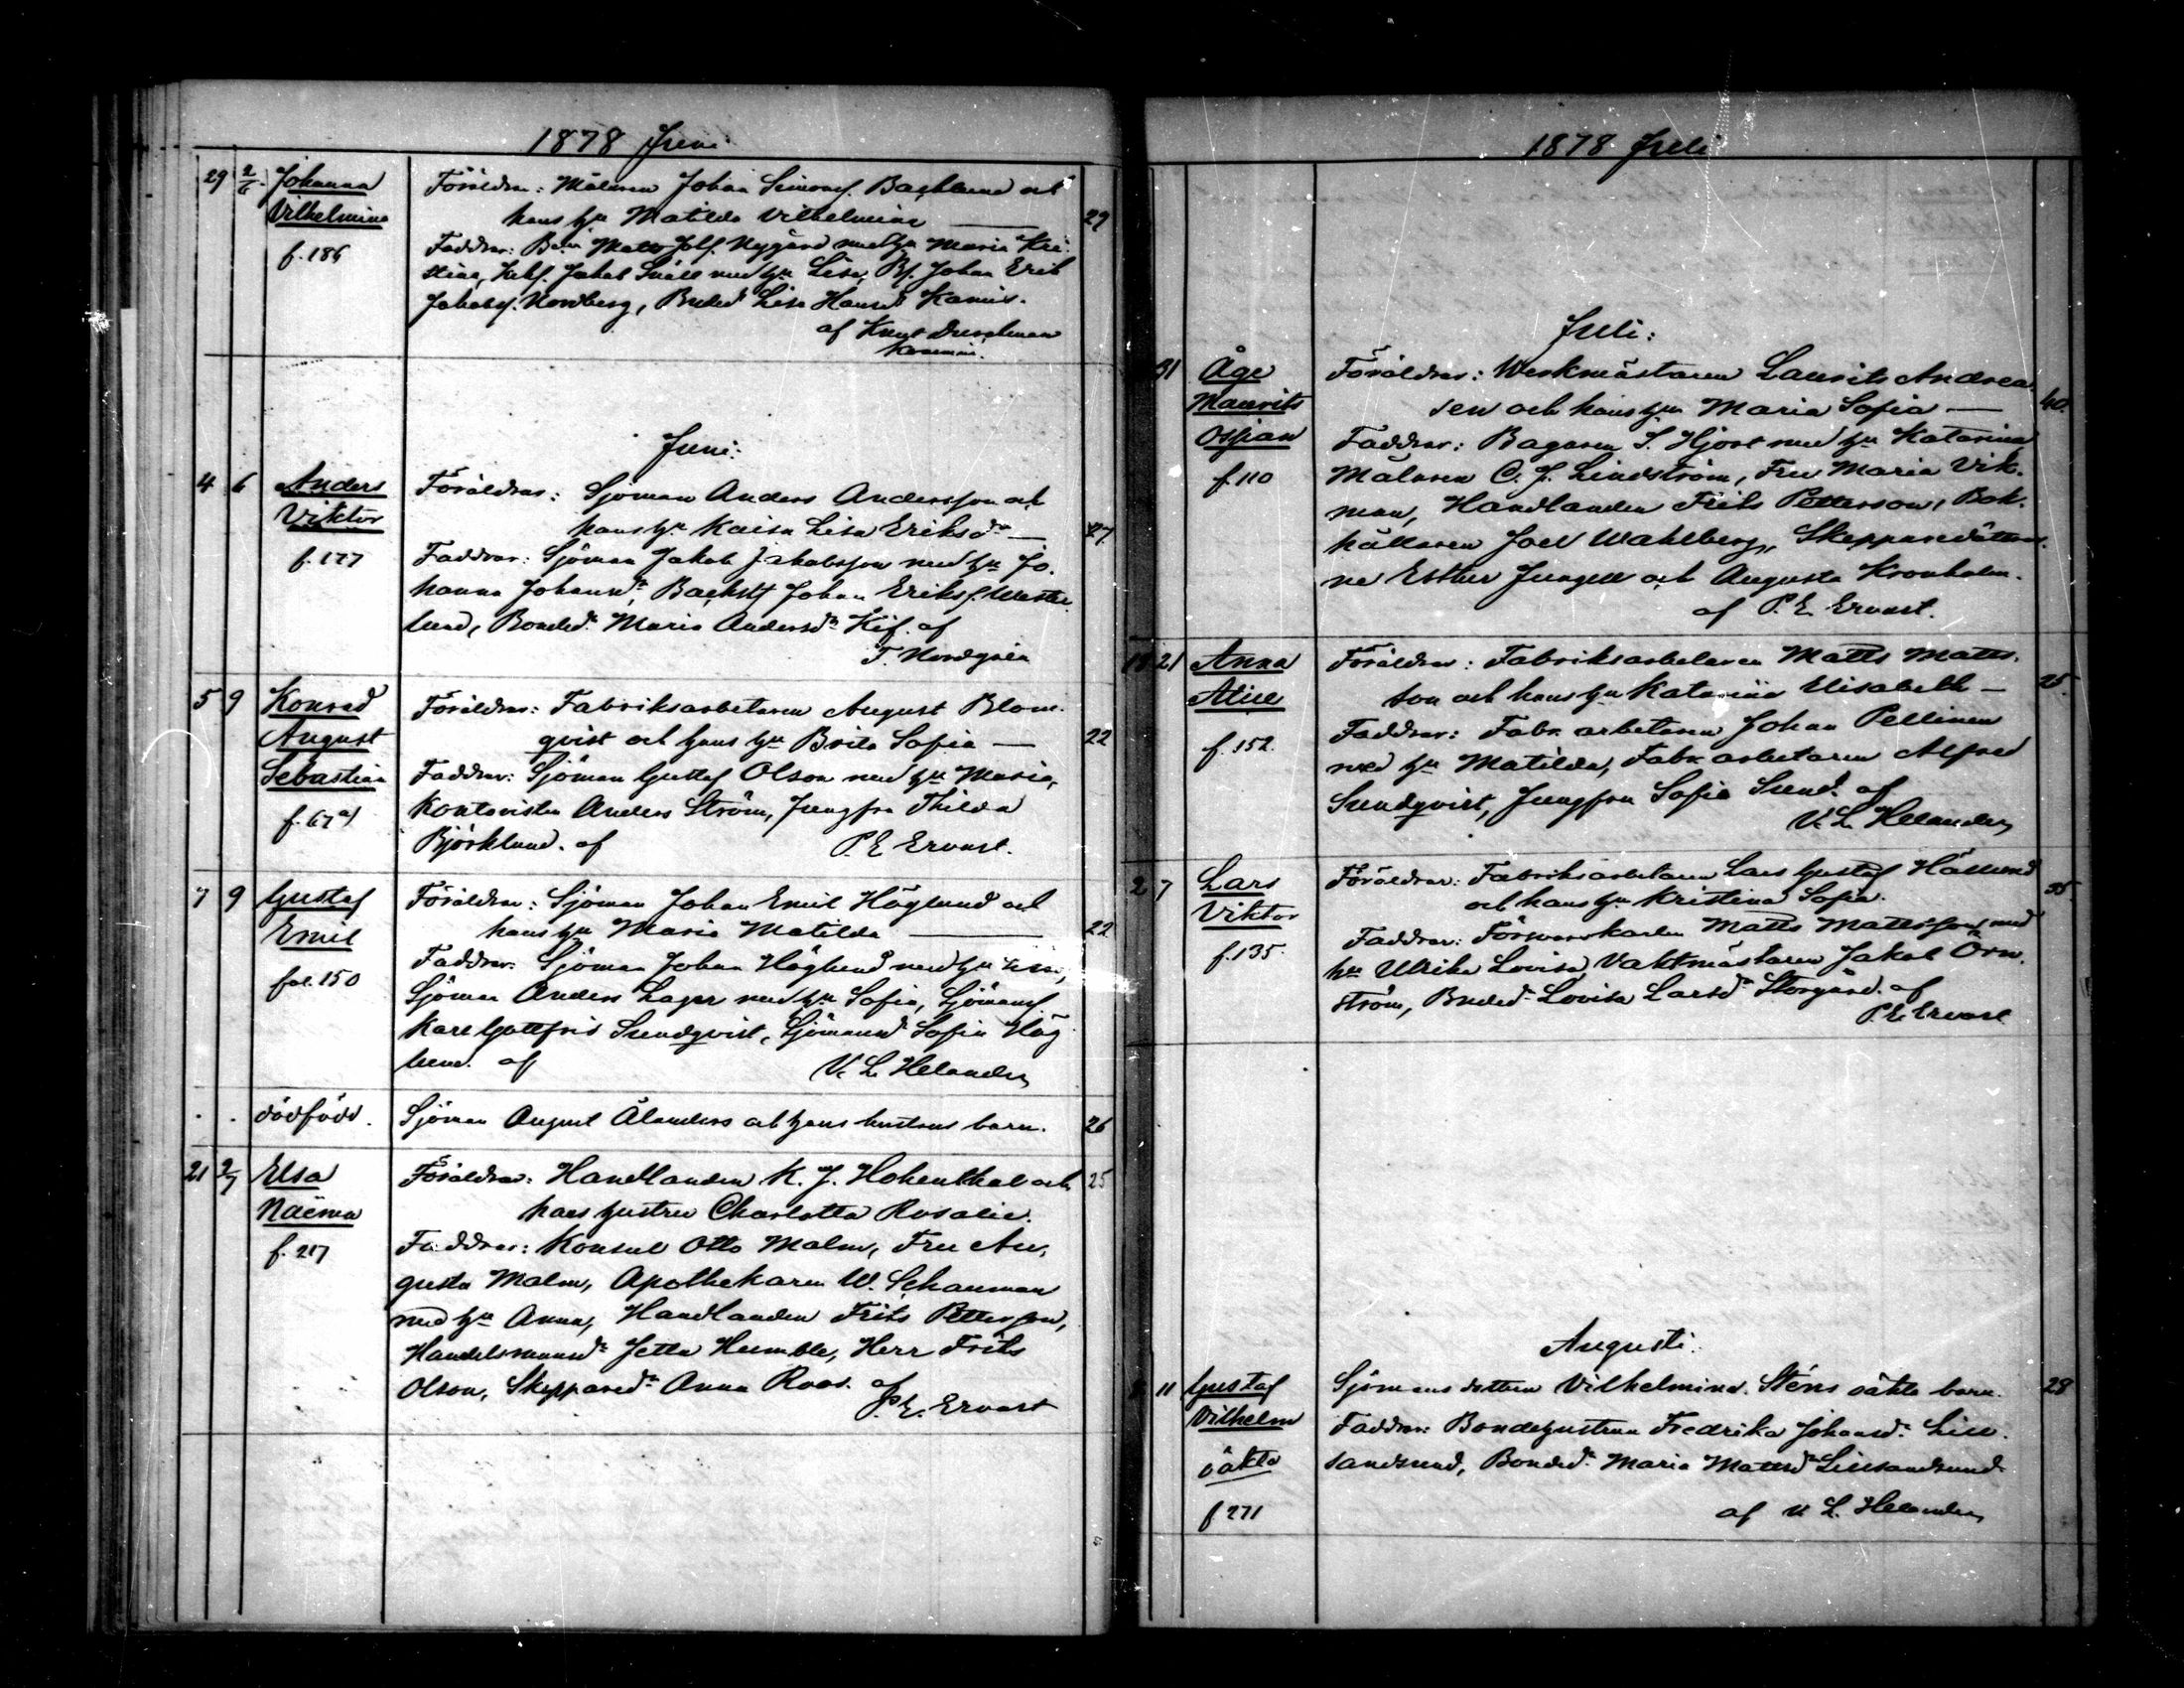 1878 Juni
29 2/6 Johanna Vilhelmina f. 186
Föräldrar: Målaren Johan Simonsf. Backlund och
hans hu Matilda Vilhelmina — 29
Faddrar: Matts Nygård med hu Maria Kri-
stina, Jakob Snåll med hu Lisa, Johan Erik
Jakobsf. Nordberg, Lisa Hansd.
af Knut
Juni:
4 6 Anders Viktor f. 127
Föräldrar: Sjöman Anders Andersson och
hans hu Kaisa Lisa Eriksdr — 27
Faddrar: Sjöman Jakob Jakobsson med hu Jo-
hanna Johansdr, Johan Eriksf. Wester-
lund, Bonded. Maria Andersdr af
T. Nordgrén
5 9 Konrad August Sebastian f. 67 a)
Föräldrar: Fabriksarbetaren August Blom-
qvist och hans hu Brita Sofia — 22
Faddrar: Sjöman Gustaf Olson med hu Maria,
Kontoristen Anders Ström, Jungfru Thilda
Björklund. af P. E. Ervast.
7 9 Gustaf Emil fol. 150
Föräldrar: Sjöman Johan Emil Höglund och
hans hu Maria Matilda — 22
Faddrar: Sjöman Johan Höglund med hu Lisa,
Sjöman Anders Lager med hu Sofia, Sjömansf.
Karl Gottfrid Sundqvist, Sjömansd. Sofia Hög-
lund. af V. L. Helander
. . dödfödd. Sjöman August Ålanders och hans hustrus barn. 26
21 2/7 Elsa Naëma f. 217
Föräldrar: Handlanden K. J. Hohenthal och 25
hans hustru Charlotta Rosalie.
Faddrar: Konsul Otto Malm, Fru Au-
gusta Malm, Apothekaren W. Schauman
med hu Anna, Handlanden Frits Petterson,
Handelsmansdr Jetta Humble, Herr Frits
Olson, Skepparedr Anna Roos. af
P. E. Ervast
1878 Juli
Juli:
31 Åge Maurits Ossian f. 110
Föräldrar: Werkmästaren Laurits Andrea-
sen och hans hu Maria Sofia — 40.
Faddrar: Bagaren S. Hjort med hu Katarina
Målaren C. J. Lindström, Fru Maria Vik-
man, Handlanden Frits Petterson, Bok-
hållaren Joel Wahlberg, Skepparedöttrar-
ne Esther Jungell och Augusta Kronholm.
af P. E. Ervast.
18 21 Anna Alice f. 152.
Föräldrar: Fabriksarbetaren Matts Matts-
son och hans hu Katarina Elisabeth — 25.
Faddrar: Fabr. arbetaren Johan Pellinen
med hu Matilda, Fabr. arbetaren Alfred
Sundqvist, Jungfru Sofia Sund. af
V. L. Helander
2 7 Lars Viktor f. 135.
Föräldrar: Fabriksarbetaren Lars Gustaf Hällund 35.
och hans hu Kristina Sofia.
Faddrar: Försvarskarlen Matts Mattsson med
hu Ulrika Lovisa, Vaktmästaren Jakob Örn-
ström, Lovisa Larsdr Storgård. af
P. E. Ervast
Augusti.
8 11 Gustaf Vilhelm oäkta f 271
Sjömans dottren Vilhelmina Sténs oäkta barn. 28
Faddrar: Bondehustrun Fredrika Johansdr Lill-
sandsund, Bonded. Maria Mattsdr Lillsandsund
af V. L. Helander